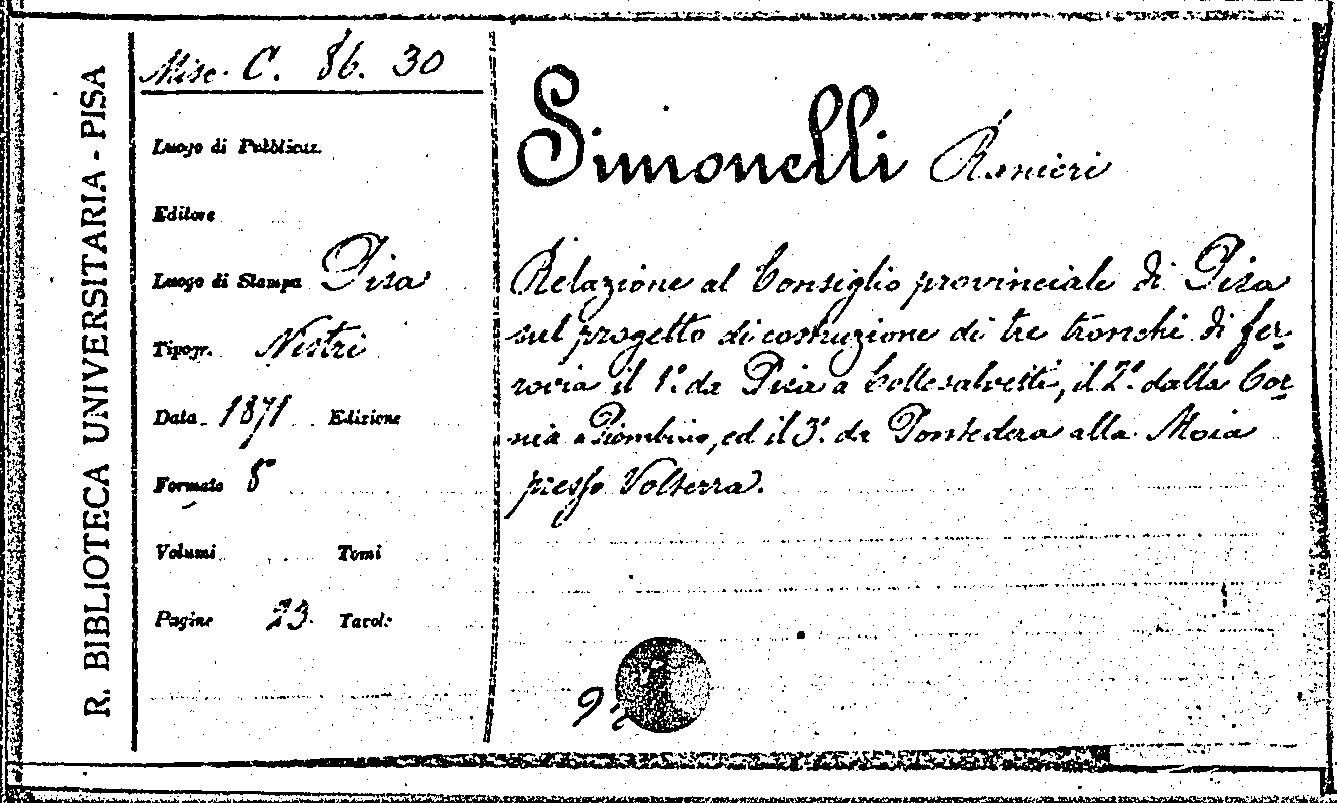 R. BIBLIOTECA UNIVERSITARIA - PISA
Misc. C. 86. 30
Luogo di Pubblicaz.
Editore
Luogo di Stampa Pisa
Tipogr. Nistri
Data 1871 Edizione
Formato 8°
Volumi Tomi
Pagine 23. Tavole
Simonelli Ranieri
Relazione al Consiglio provinciale di Pisa
sul progetto di costruzione di tre tronchi di fer-
rovia il 1° da Pisa a Collesalvetti, il 2° dalla Cor-
nia a Piombino, ed il 3° da Pontedera alla Moia
presso Volterra.